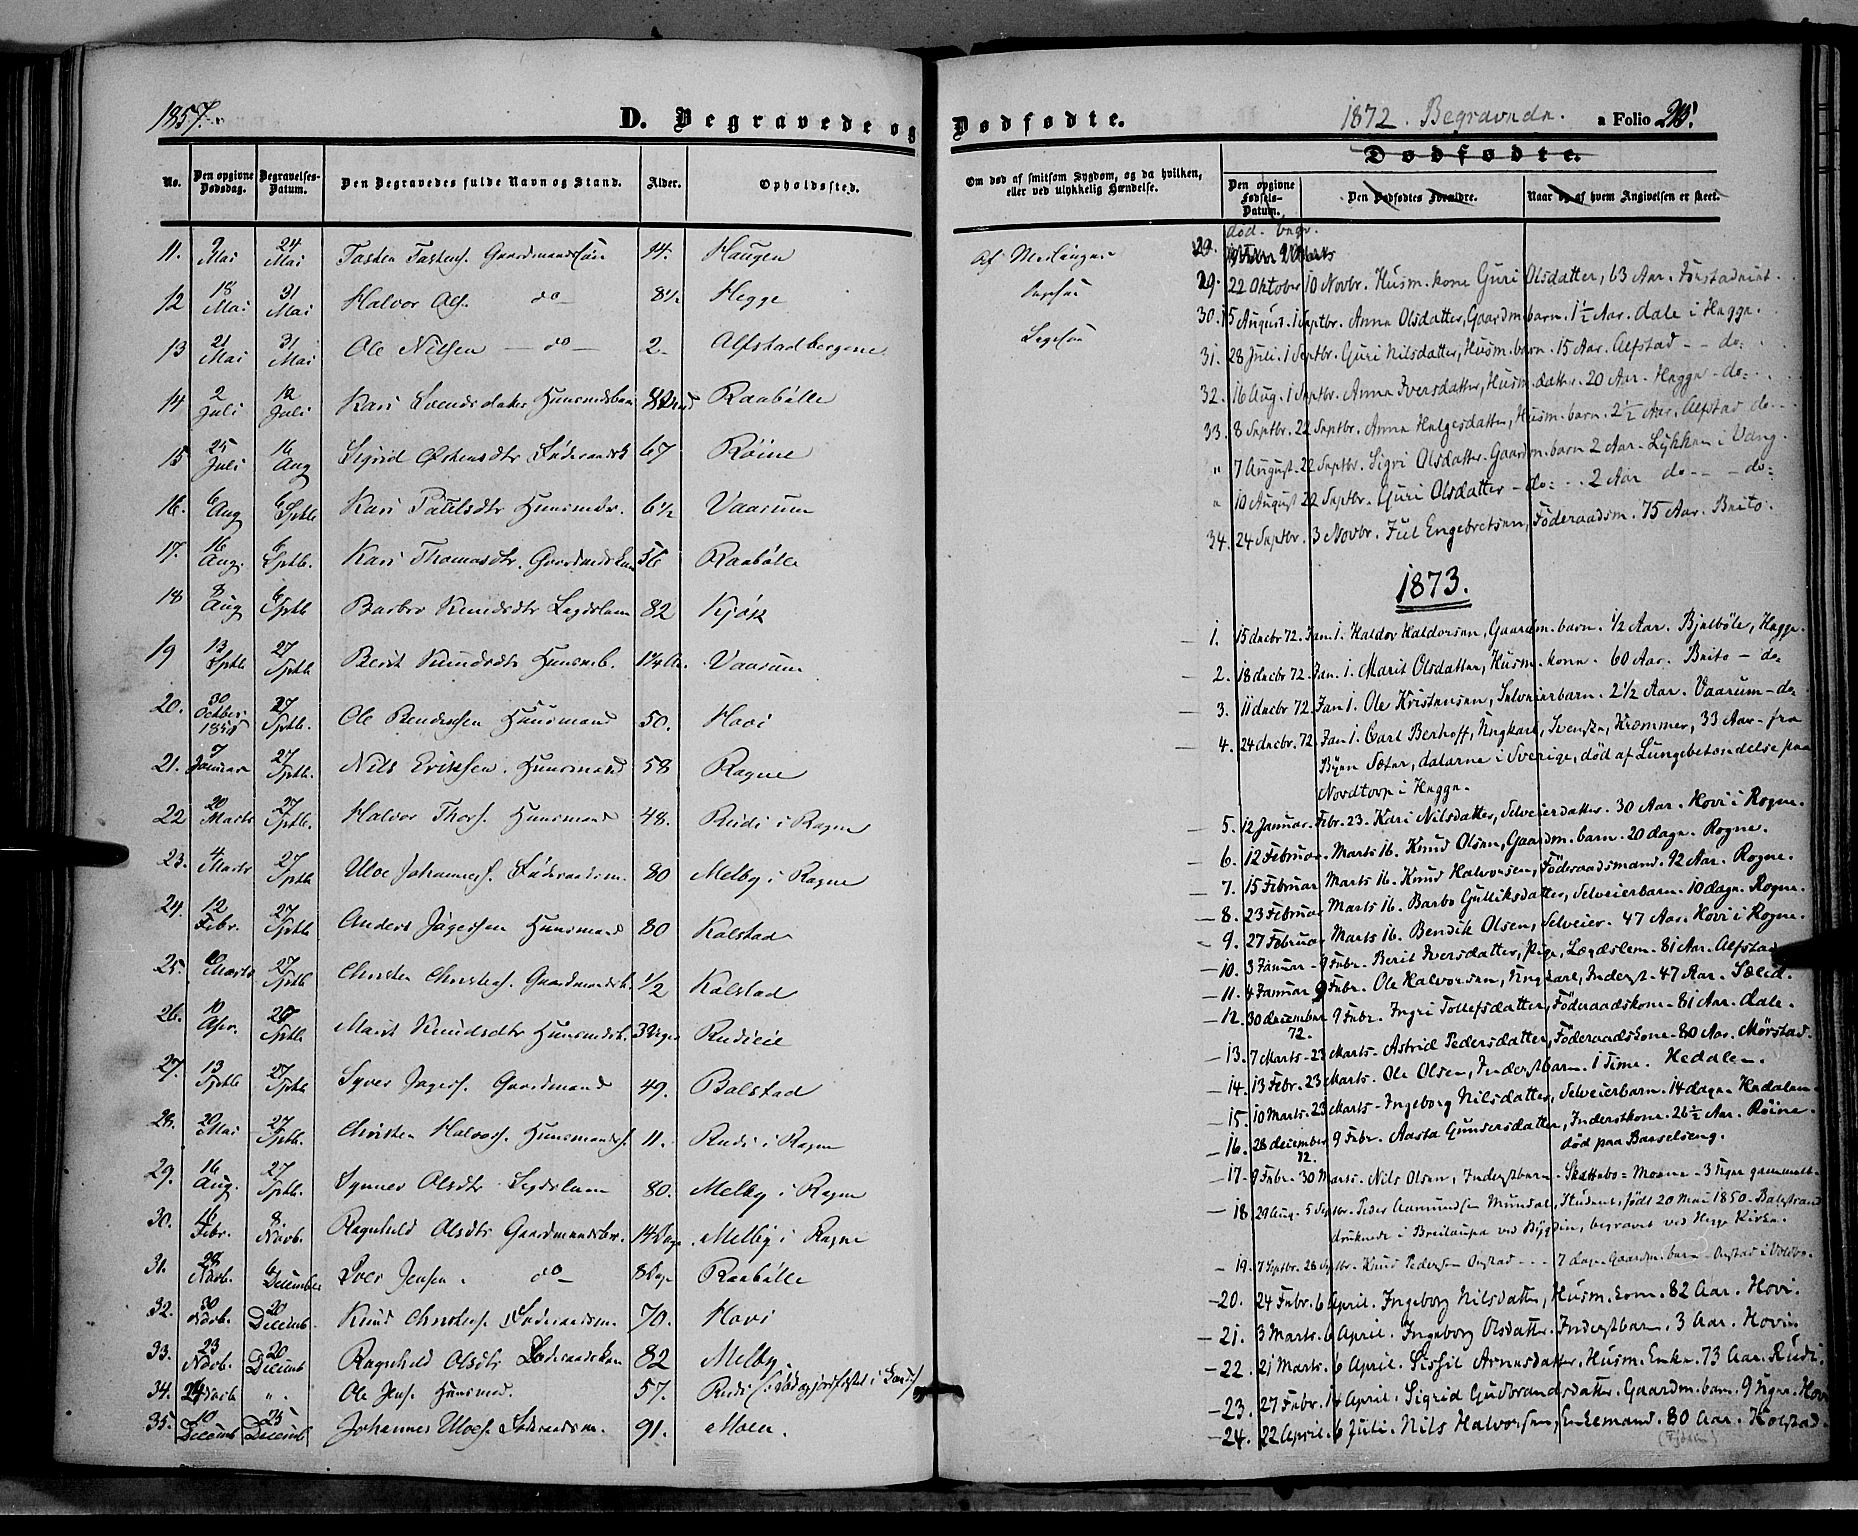 1857.
D. Begravede og Dødfødte.
1872. Begravede.
a Folio 215.
No. Den opgivne Dødsdag. Begravelses-Datum. Den Begravedes fulde Navn og Stand. Alder. Opholdssted. Om død af smitsom Sygdom, og da hvilken, eller ved ulykkelig Hændelse.
Dødfødte.
Den opgivne Fødsels-Datum. Den Dødfødtes Forældre. Naar og af hvem Angivelsen er skeet.
11. 2 Mai 24 Mai Tosten Tostens. Gaardmands 14. Haugen
12 18 Mai 31 Mai Halvor Ols. do 8½ Hegge
13 21 Mai 31 Mai Ole Nilsen do 2. Alfstadbergene
14 2 Juli 12 Juli Kari Svendsdater Huusmdsbarn Raabølle
15 25 Juli 16 Aug Sigrid Østensdtr Føderaadsk 67 Røine
16. 6 Aug 6 Sptb Kari Paulsdtr Huusmdbr. 6½ Vaarum
17. 16 Aug. 6 Sptb. Kari Thomasdtr. Gaardmandskone 56 Raabølle
18 8 Aug 6 Sptb Barbro Knudsdtr Lægdslem 82 Kjøk
19 13 Sptb 27 Sptb Berit Knudsdtr Huusmb. Vaarum
20. 30 Octber 1856 27 Sptb. Ole Bendiksen Huusmand 50. Hovi
21. 7 Januar 27 Sptb. Nils Eriksen. Huusmand 58 Rogne
22 20 Marts 27 Sptb. Halvor Thors. Huusmand 48. Rudi i Rogne
23. 4 Marts 27 Sptb Uloe Johanness. Føderaadsm. 80 Melby i Rogne
24. 12 Febr. 27 Sptb Anders Jøgersen Huusmand 80 Kolstad
25. Marts 27 Sptb Christen Christens. Gaardmandsb. ½ Kolstad
26. 10 Apr. 27 Sptb Marit Knudsdtr Huusmandsb. 3 Uger Rudieie
27. 13 Sptb 27 Sptb Syver Jøgers. Gaardmand 49. Bolstad
28. 20 Mai 27 Sptb. Christen Halvors. Huusmands. 11. Rudi i Rogne
29. 16 Aug. 27 Sptb. Synnev Olsdtr Legdslem 80. Melby i Rogne
30. 16 Febr. 8 Novb. Ragnhild Olsdtr Gaardmandsbr. 14 Dage Melby i Rogne
31. 28 Novb. 6 Decembr Iver Jensen. do 8 Dage Raabølle
32. 30 Novb. 20 Decemb. Knud Christens. Føderaadsm. 70. Hovi
33. 23 Novb. 20 Decemb Ragnhild Olsdtr Føderaadskon 82 Melby
34. 24 Novb „. Ole Jens. Huusmd. 57. Rudi
35. 10 Decemb 25 Decemb Johannes Uloes. Føderaadsm. 91. Moen.
død. begr.
29. 22 Oktober 10 Novbr. Husm. kone Guri Olsdatter, 63 Aar.
30. 15 August. 1 Septbr. Anne Olsdatter, Gaardm. barn. 1½ Aar. Dale i Hegge.
31. 28 Juli. 1 Septbr. Guri Nilsdatter, Husm. barn. 15 Aar. Alfstad - - do:
32. 16 Aug. 1 Septbr. Anne Iversdatter, Husm. datter. 20 Aar. Hegge - do:
33. 8 Septbr. 22 Septbr. Anne Helgesdatter, Husm. barn. 2½ Aar. Alfstad do
" 7 August. 22 Septbr. Sigri Olsdatter. Gaardm. barn 2 Aar. Lykken i Vang.
" 10 August 22 Septbr. Guri Olsdatter - do: . . 2 Aar do - - - do:
34. 24 Septbr. 3 Novbr. Juel Engebretsen, Föderaadsm. 75 Aar. Beito.
1873.
1. 15 decbr 72. Jan. 1. Haldor Haldorsen, Gaardm. barn. ½ Aar. Bjelbøle, Hegge.
2. 18 decbr 72. Jan. 1. Marit Olsdatter, Husm. kone. 60 Aar. Beito - do.
3. 11 decbr 72. Jan 1. Ole Kristensen, Selveierbarn. 2½ Aar. Vaarum - do.
4. 24 decbr. 72. Jan 1. Carl Berhoff, Ungkarl, Svensk, Kræmmer, 33 Aar - fra
Byen Sæter, dalarne i Sverige, død af Lungebetændelse paa
Nordtorp i Hegge.
5. 12 Januar. Febr. 23. Kari Nilsdatter, Selveierdatter. 30 Aar. Hovi i Rogne.
6. 12 Februar. Marts 16. Knud Olsen, Gaardm. barn. 20 dage. Rogne.
7. 15 Februar Marts 16. Knud Halvorsen, Föderaadsmand. 92 Aar. Rogne.
8. 23 Februar Marts 16. Barbo Gulliksdatter, Selveierbarn. 10 dage. Rogne.
9. 27 Februar Marts 16. Bendik Olsen, Selveier. 47 Aar. Hovi i Rogne.
10. 3 Januar - 9 Febr. Berit Iversdatter, Pige, Lægdslem. 81 Aar. Alfstad
11. 4 Januar 9 Febr. Ole Halvorsen, Ungkarl, Inderst - 47 Aar. Sælid.
12. 30 december 72. 9 Febr. Ingri Tollefsdatter, Föderaadskone - 81 Aar. Dale.
13. 7 Marts - 23 Marts. Astrid Pedersdatter, Föderaadskone - 80 Aar. Mørstad.
14. 13 Febr. 23 Marts. Ole Olsen, Inderstbarn. 1 Time. Hedalen.
15. 10 Marts. 23 Marts - Ingeborg Nilsdatter, Selveierbarn. 14 dage. Hedalen.
16. 28 december 72. 9 Febr. Aasta Gunersdatter, Inderstkone. 26½ Aar. Röine.
død paa Barselseng.
17. 9 Febr. 30 Marts. Nils Olsen, Inderstbarn - Skattebo = Moene - 3 Uger gammelt.
18 29 Aug. 5 Septbr. Peder Aamundsen Mundal, Student, født 20 Mai 1850 - Balestrand
druknede i Breilaupa ved Bygdin, begravet ved Hegge Kirke.
19. 7 Septbr. 28 Septbr. Knud Pedersen Onstad - - - 7 dage. Gaardm. barn - Onstad i Volbo.
20. 24 Febr. 6 April. Ingeborg Nilsdatter, Husm. kone. 82 Aar. Hovi.
21. 3 Marts. 6 April. Ingeborg Olsdatter. Inderstbarn. 3 Aar. Hovi.
22. 21 Marts. 6 April. Sissil Arnesdatter, Husm. Enke. 73 Aar. Rudi.
23. 27 Febr. 14 April. Sigrid Gudbrandsdatter. Gaardm. barn. 9 Uger. Hovi
24. 22 April. 6 Juli. Nils Halvorsen, Enkemand. 80 Aar. Kolstad.